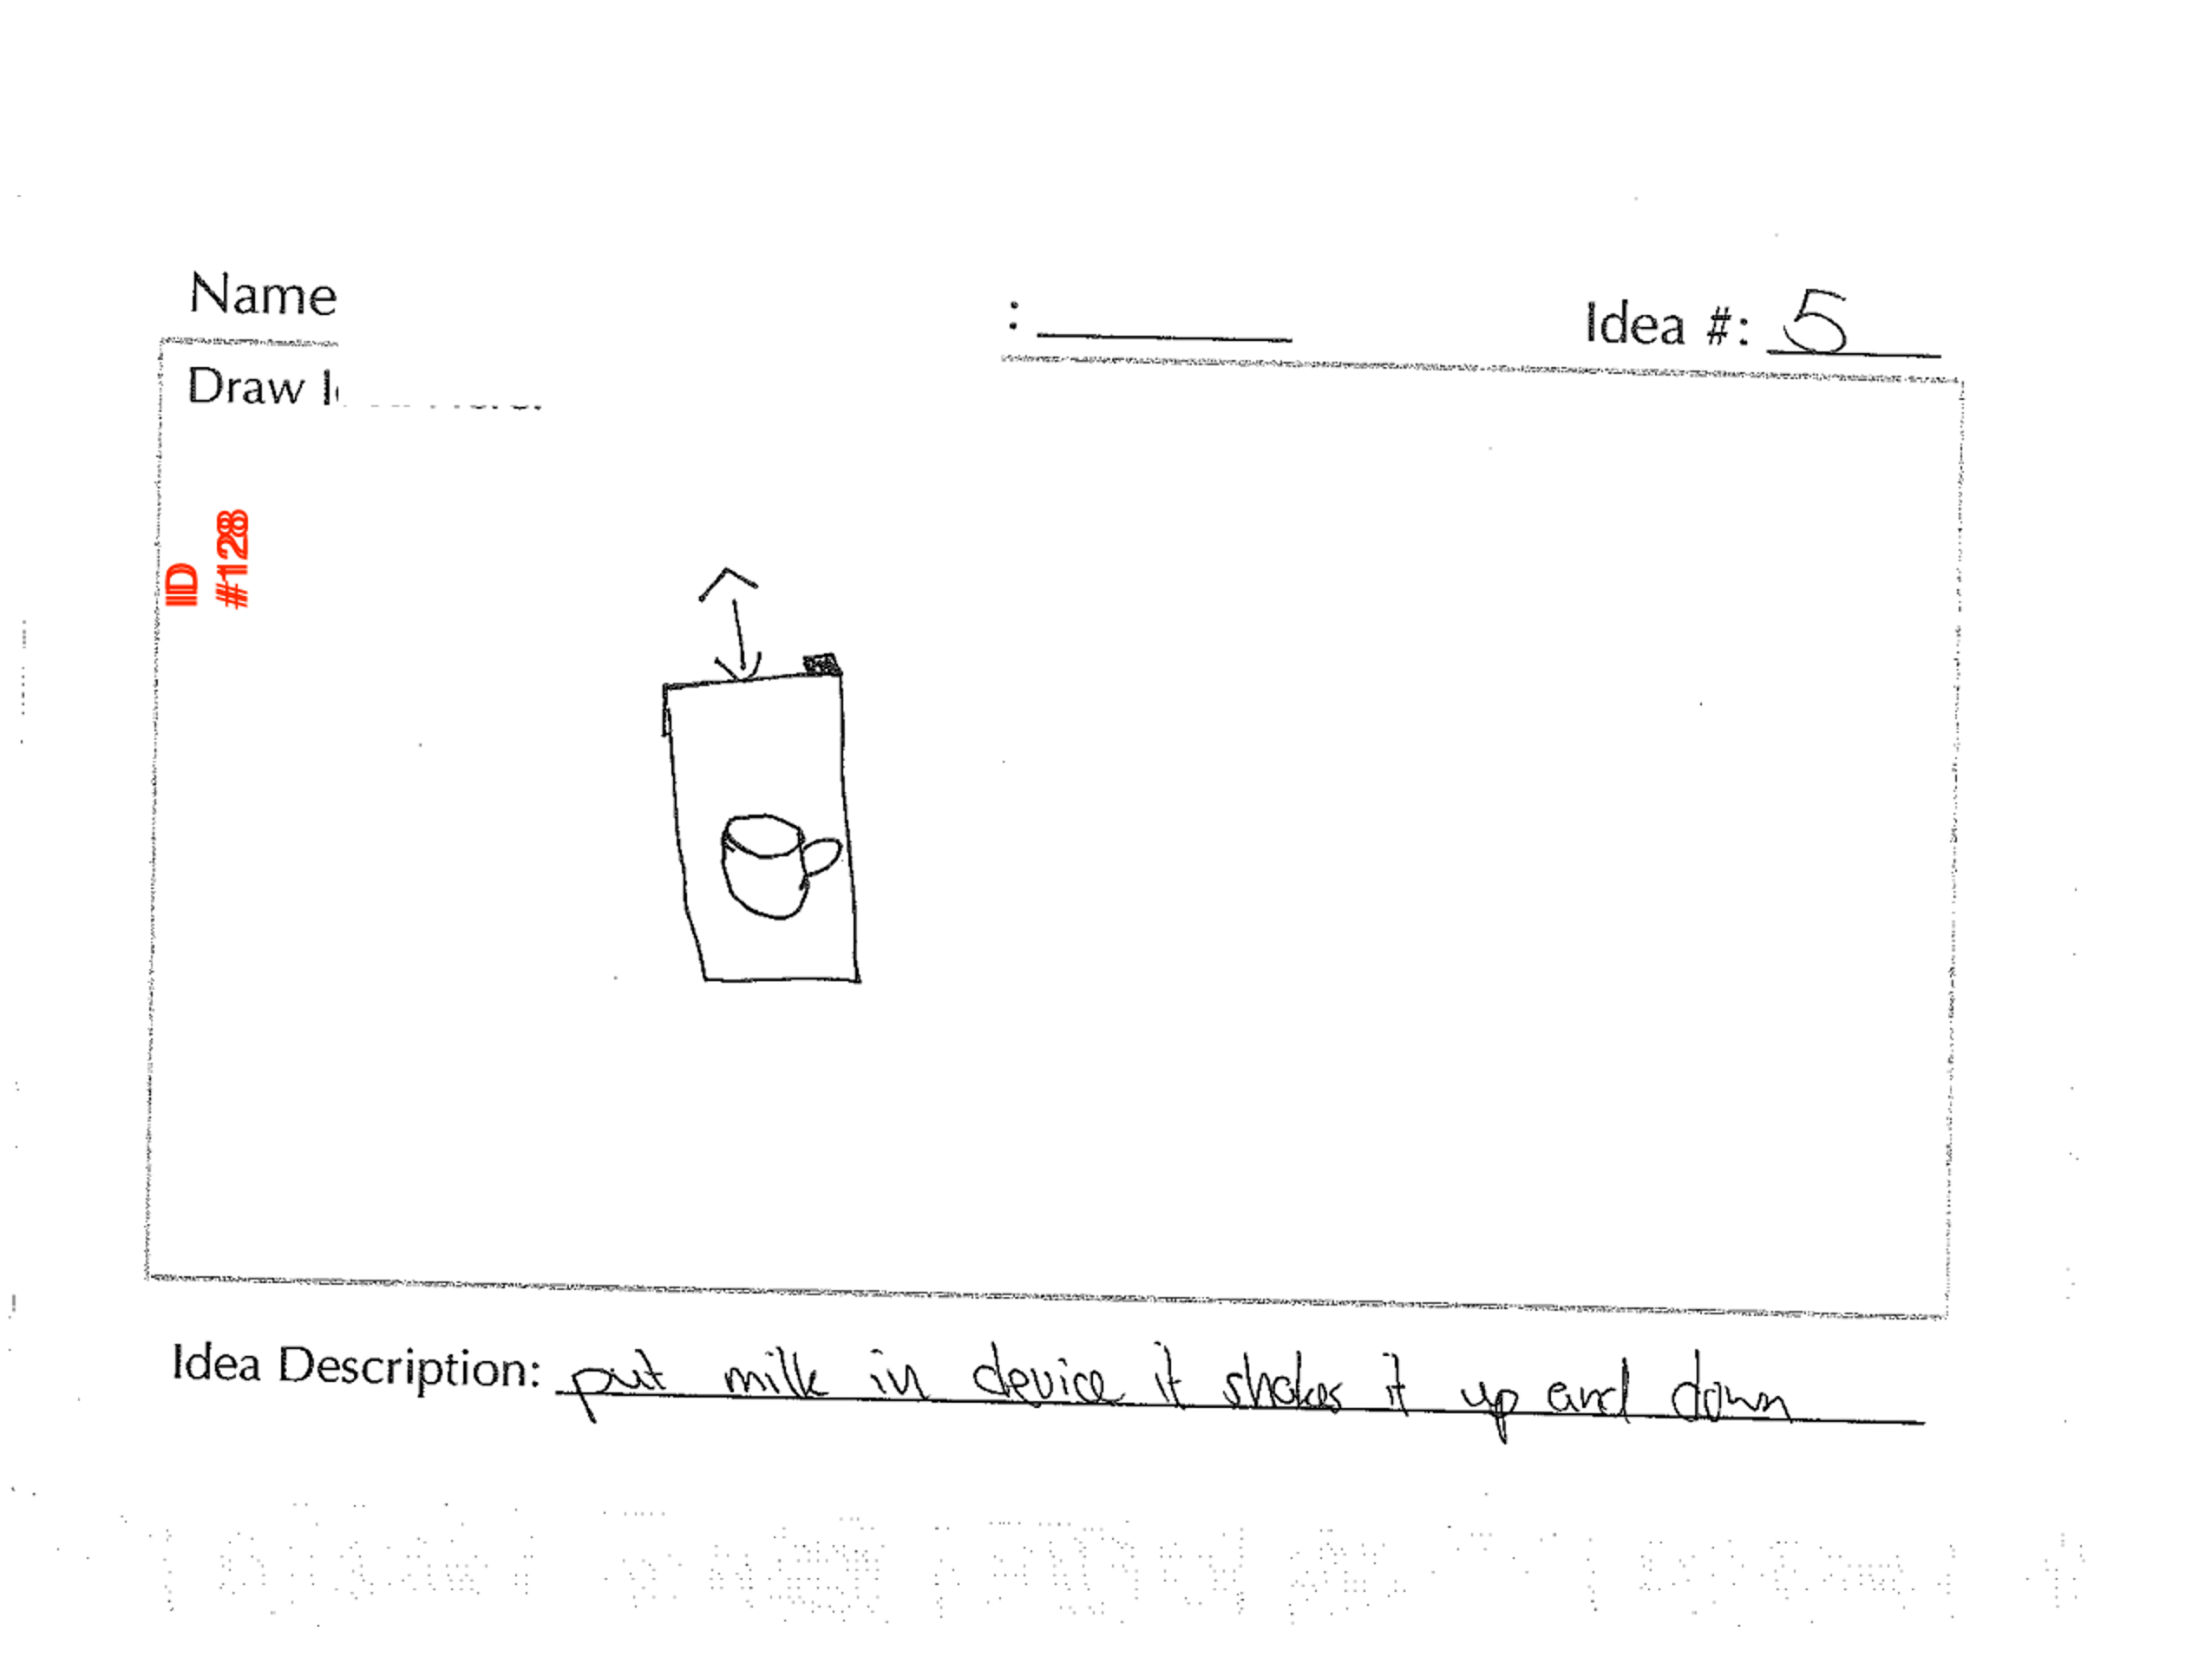 Name : Idea #: 5
Draw
ID
#128
Idea Description: put milk in device it shakes it up and down